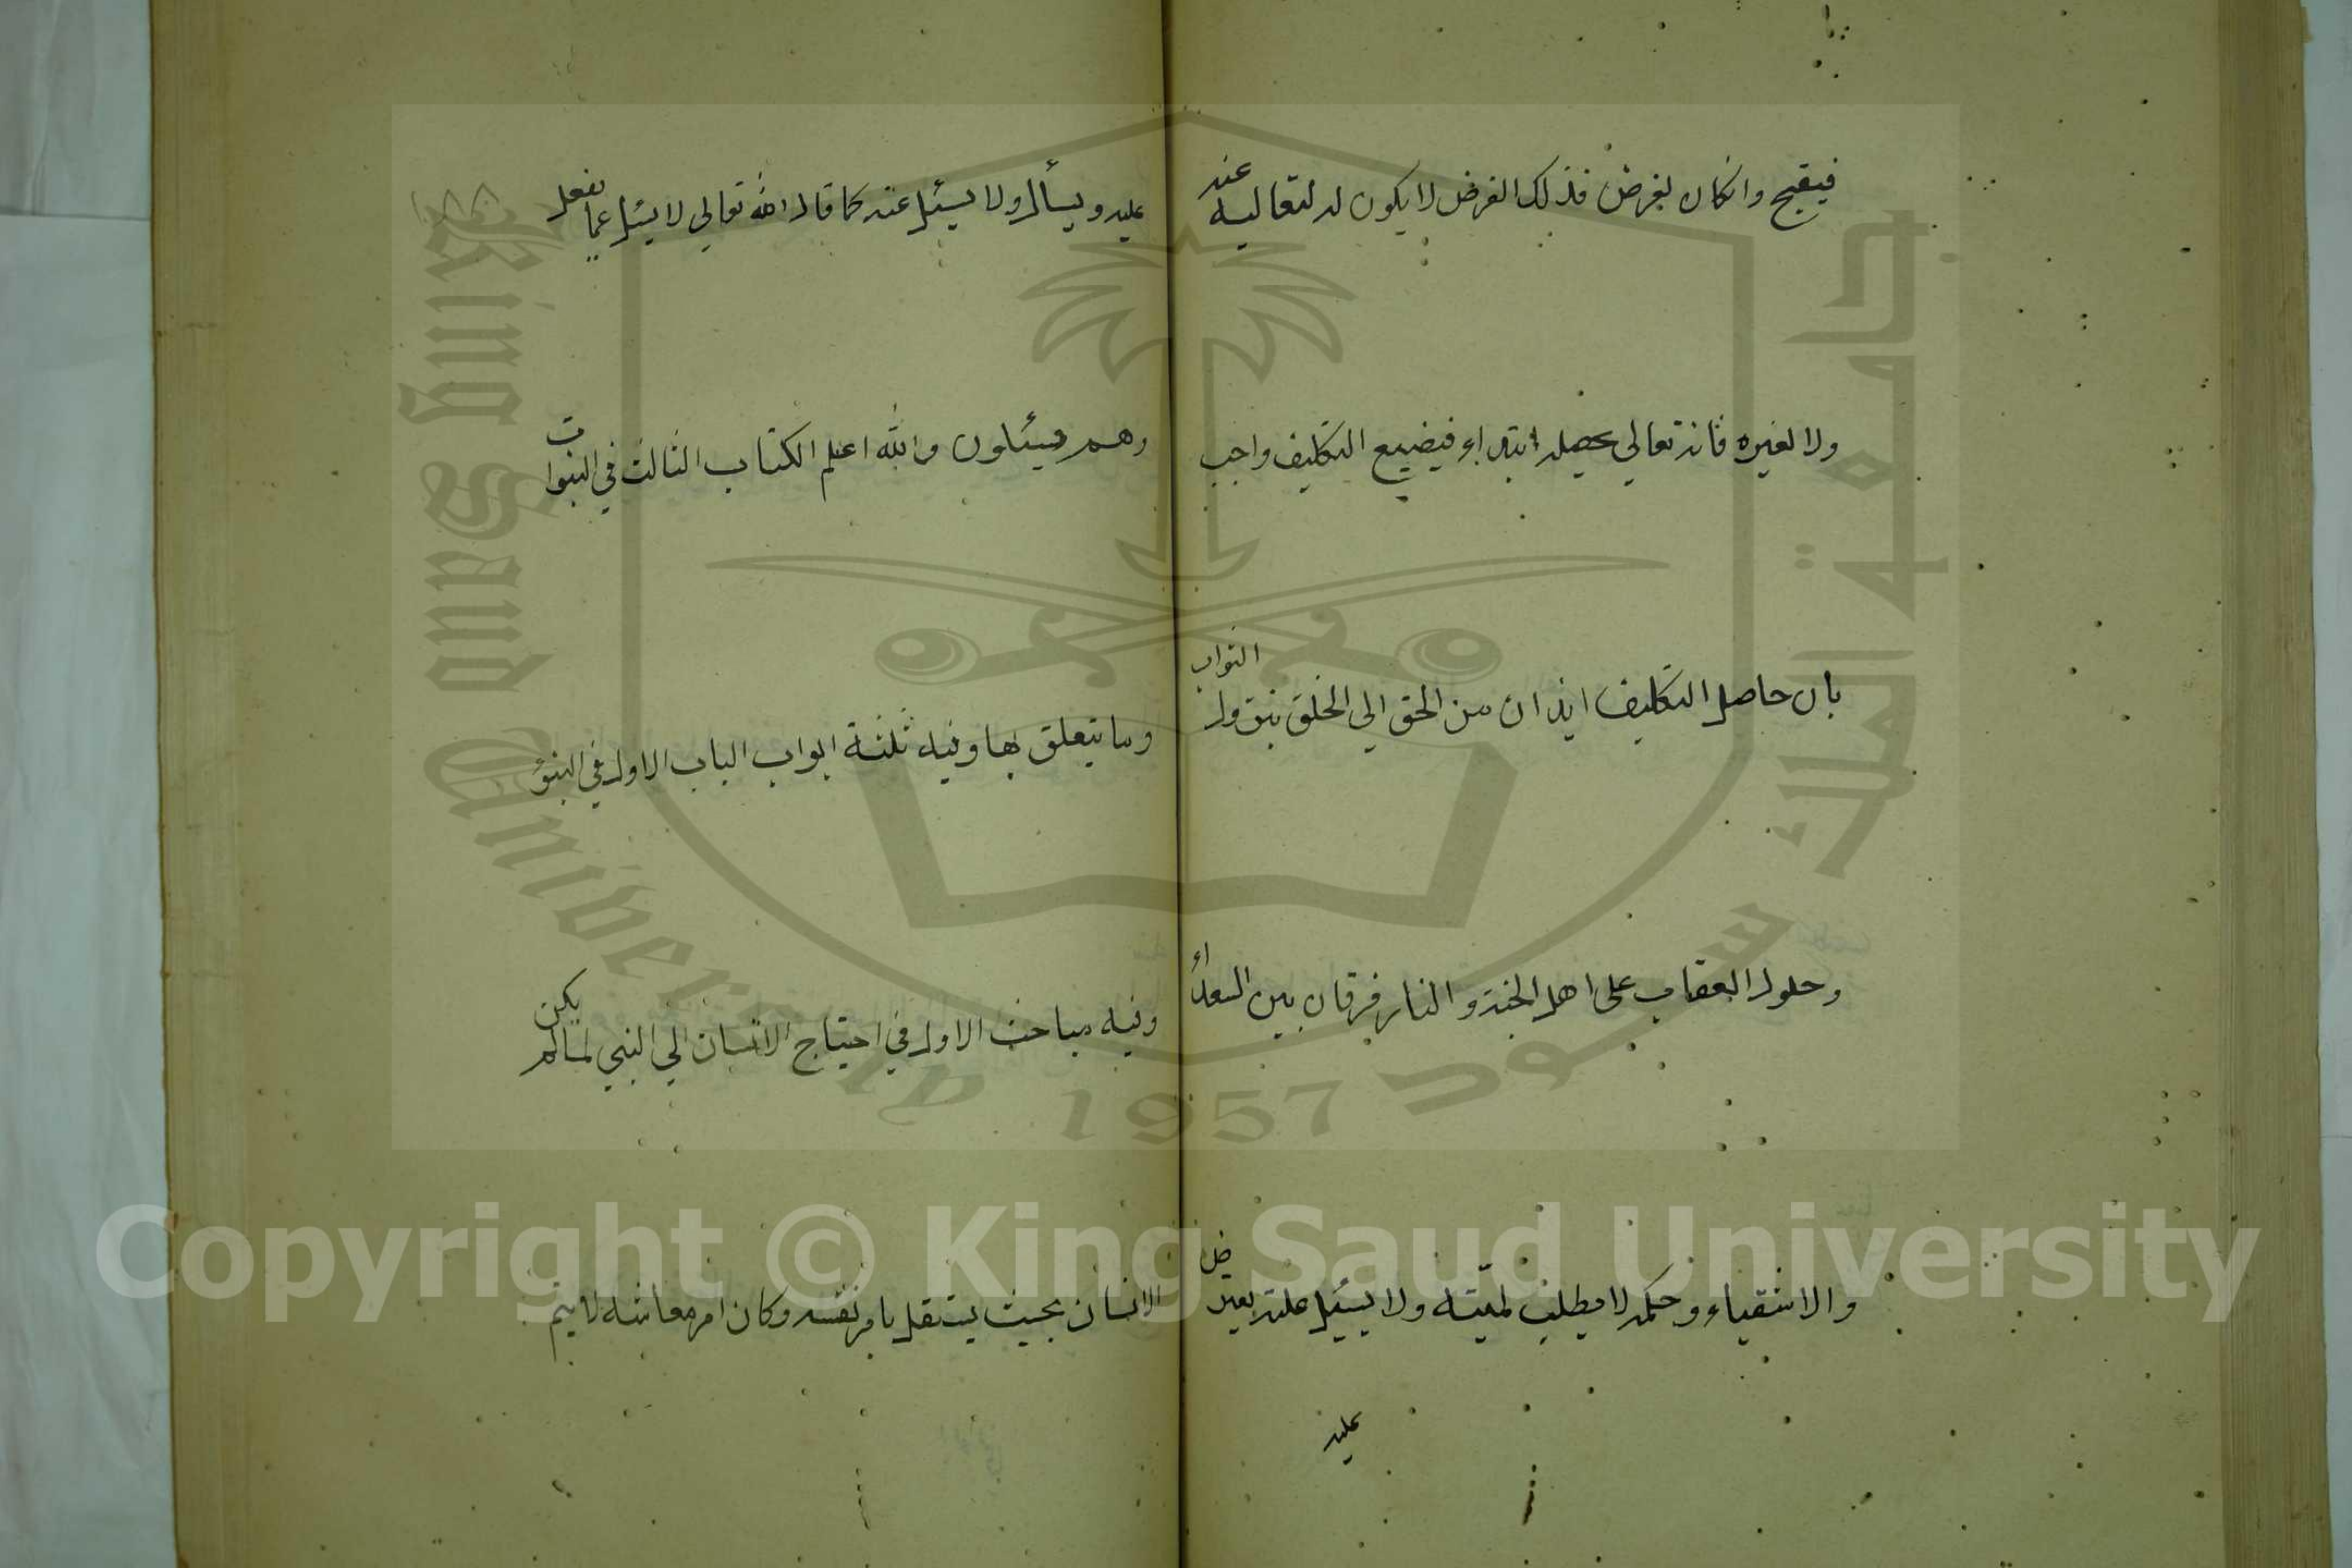 فيقبح وان كان لغرض فذلك الغرض لا يكون له لتعاليه عنه
ولا لغيره فانه تعالى يحصله ابتداء فيضيع التكليف واجب
بان حاصل التكليف ايذان من الحق الى الخلق بنزول الثواب
وحلول العقاب على اهل الجنة والنار فرقان بين السعداء
والاشقياء وحكمه لا يطلب لميته ولا يسئل عليه بعرض
عليه
١٨٨
عليه ويسأل ولا يسئل عنه كما قال الله تعالي لا يسئل عما يفعل
وهم يسئلون والله اعلم الكتاب الثالث في النبوات
وما يتعلق بها وفيه ثلثة ابواب الباب الاول في النبوة
وفيه مباحث الاول في احتياج الانسان الي النبي لما لم يكن
الانسان بحيث يستقل بامر نفسه وكان امر معاشه لا يتم
جامعة الملك سعود
King Saud University
1957
Copyright © King Saud University